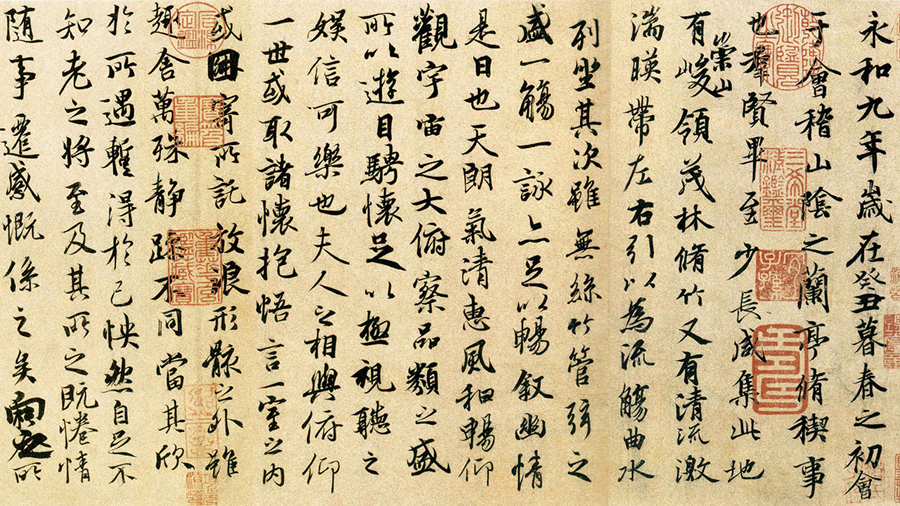 永和九年歲在癸丑暮春之初會
于會稽山陰之蘭亭脩稧事
也羣賢畢至少長咸集此地
有崇山峻領茂林脩竹又有清流激
湍暎帶左右引以為流觴曲水
列坐其次雖無絲竹管弦之
盛一觴一詠亦足以暢敘幽情
是日也天朗氣清惠風和暢仰
觀宇宙之大俯察品類之盛
所以遊目騁懷足以極視聽之
娛信可樂也夫人之相與俯仰
一世或取諸懷抱悟言一室之內
或因寄所託放浪形骸之外雖
趣舍萬殊靜躁不同當其欣
於所遇暫得於己怏然自足不
知老之將至及其所之既惓情
隨事遷感慨係之矣向之所
三希堂精鑑璽
宜子孫